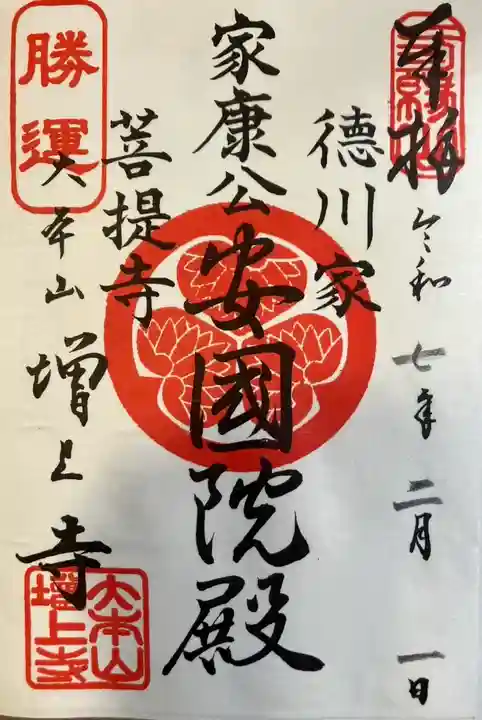 奉拝 令和七年二月一日
徳川家
家康公 安國院殿
菩提寺
勝運
大本山 増上寺
大本山
増上寺